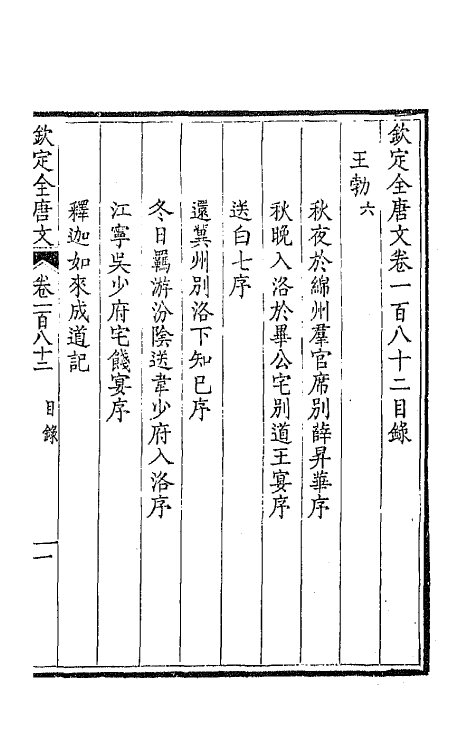 欽定全唐文卷一百八十二目錄
王勃 六
秋夜於綿州羣官席別薛昇華序
秋晚入洛於畢公宅別道王宴序
送白七序
還冀州別洛下知己序
冬日羈游汾陰送韋少府入洛序
江寧吳少府宅餞宴序
釋迦如來成道記
欽定全唐文 卷一百八十二 目錄 一